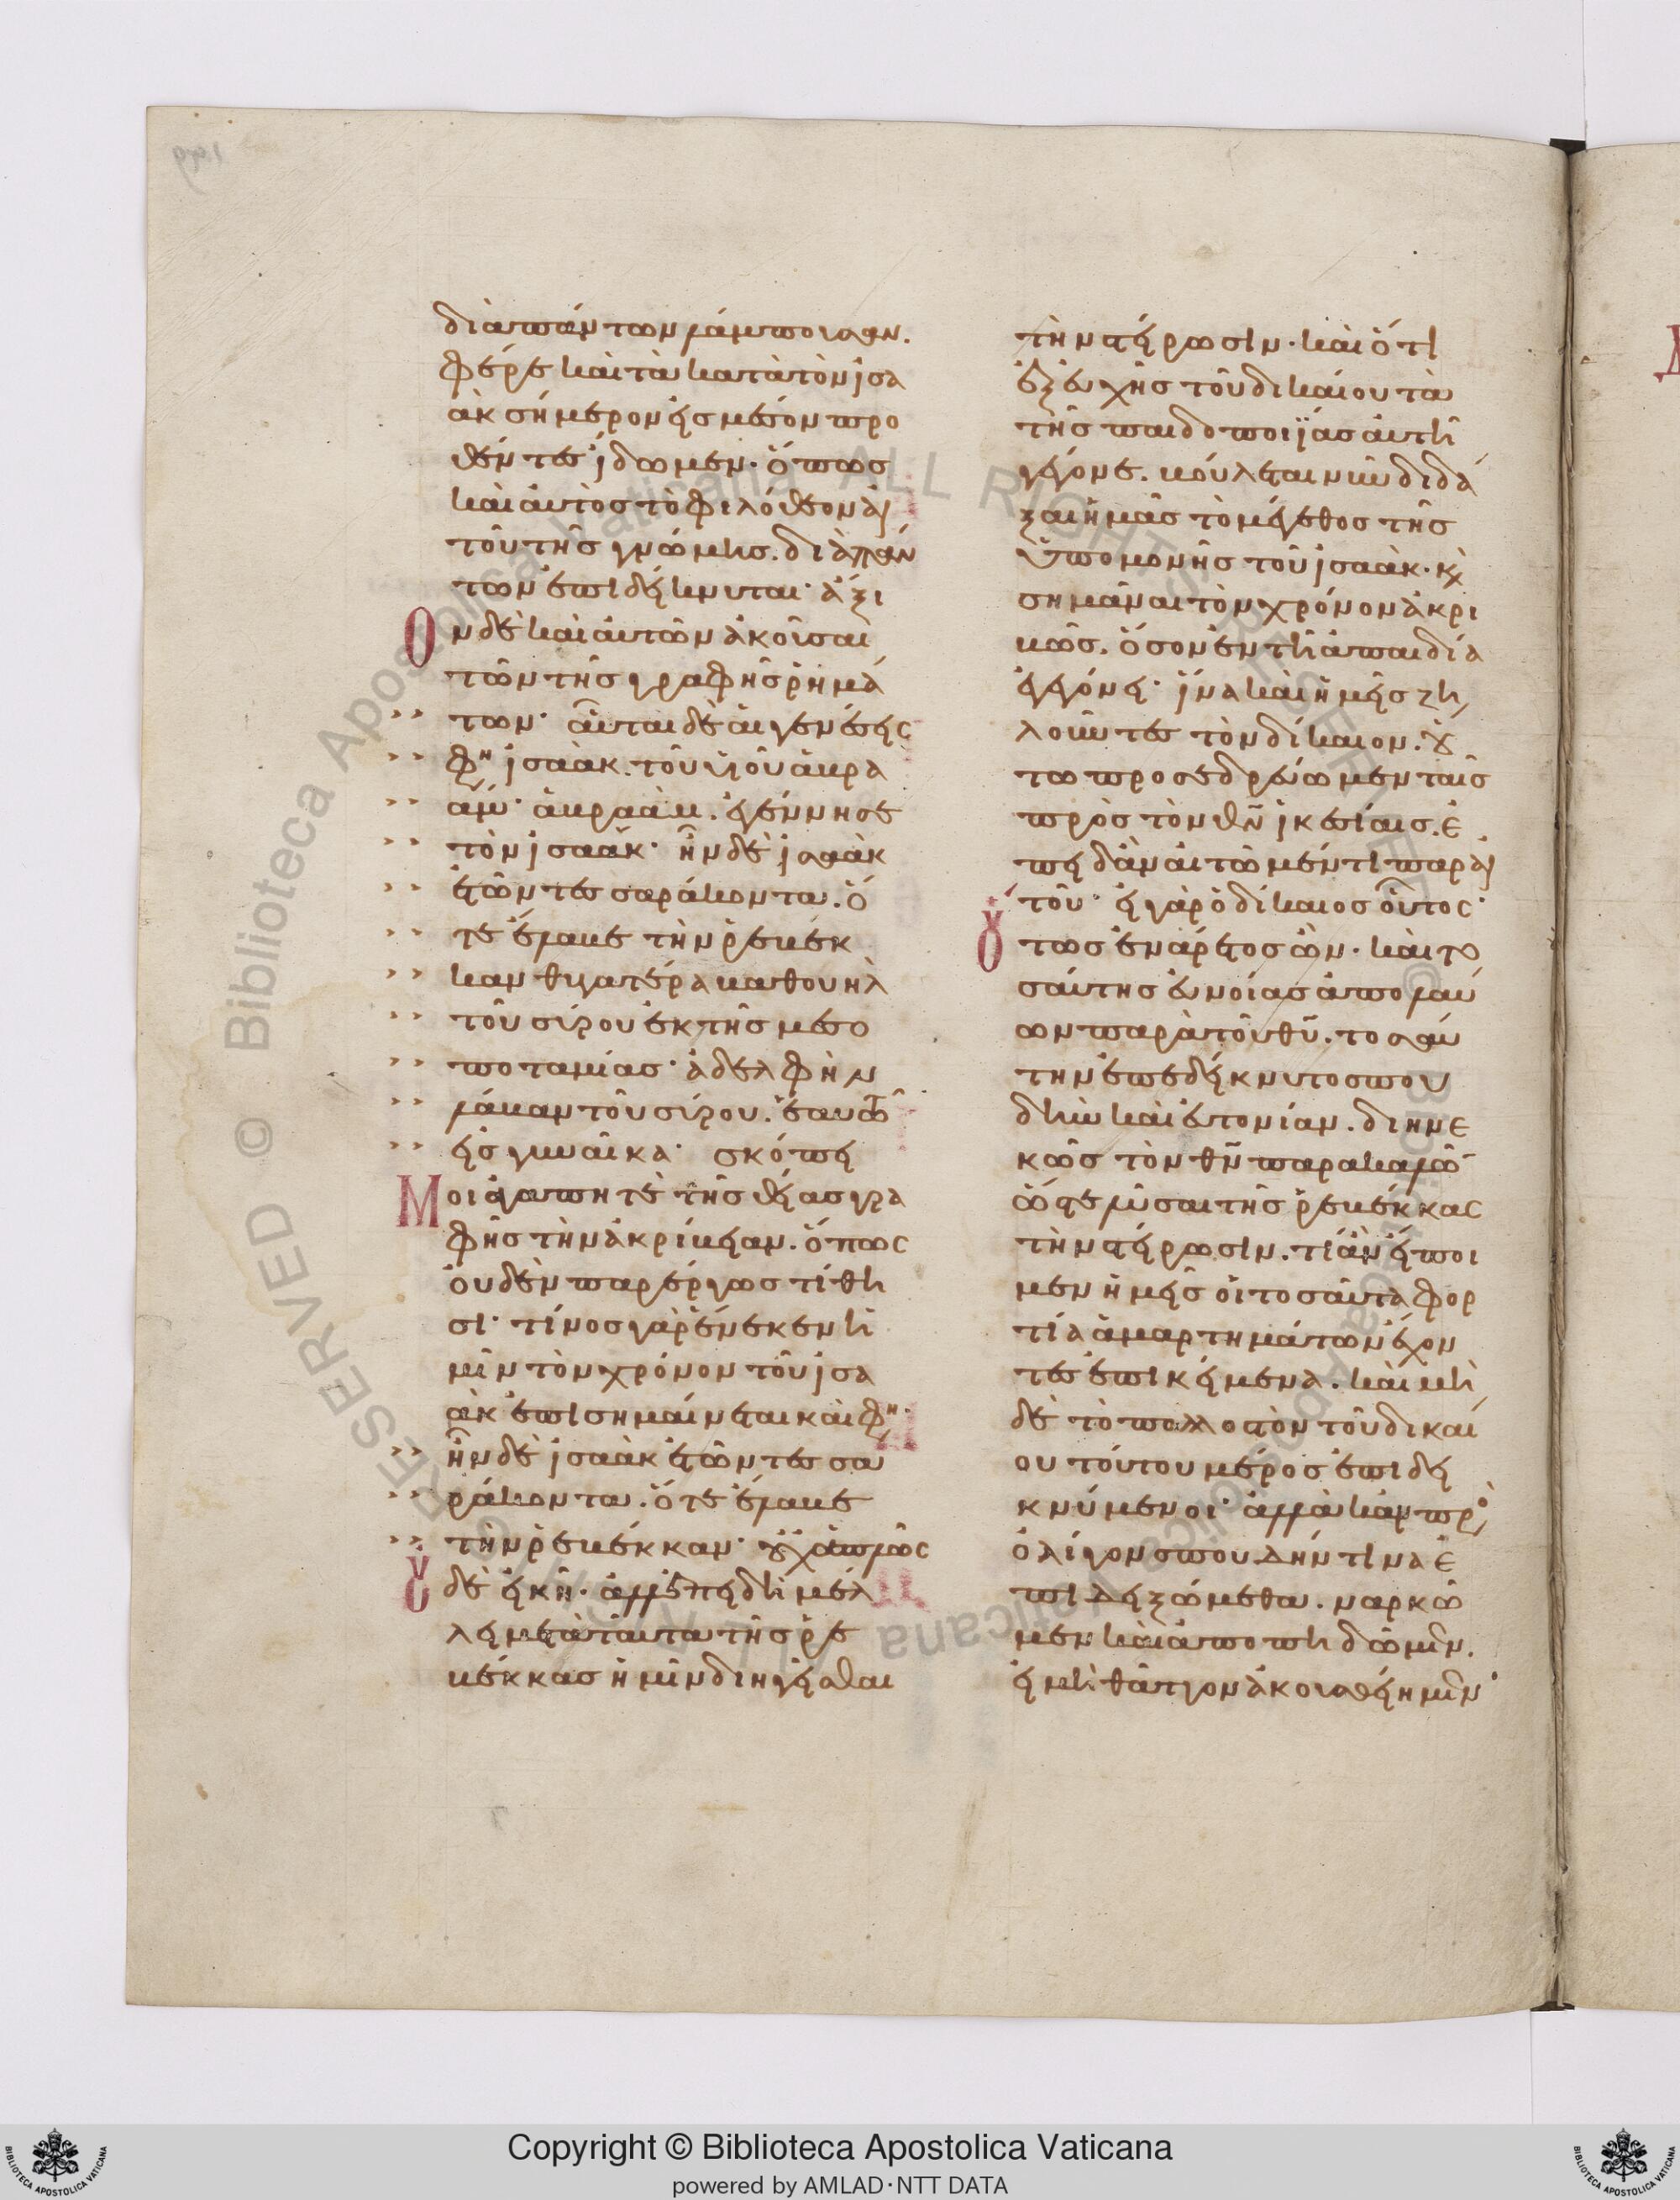 διὰ πάντων λάμπουσαν.
φέρε καὶ τὰ κατὰ τὸν ἰσα
ὰκ σήμερον εἰς μέσον προ
θέντες ἴδωμεν. ὅπως
καὶ αὐτὸς τὸ φιλόθεον αὐ
τοῦ τῆς γνώμης. διὰ πάν
των ἐπιδείκνυται· ἄξι
Ον δὲ καὶ αὐτῶν ἀκοῦσαι
τῶν τῆς γραφῆς ῥημά
των· αὗται δὲ αἱ γενέσεις
φη ἰσαὰκ. τοῦ υἱοῦ ἀβρα
άμ· ἀβραὰμ. ἐγέννησε
τὸν ἰσαάκ· ἦν δὲ ἰσαὰκ
ἐτῶν τεσσαράκοντα. ὅ
τε ἔλαβε τὴν ῥεβέκ
καν θυγατέρα βαθουὴλ
τοῦ σύρου ἐκ τῆς μεσο
ποταμίας· ἀδελφὴν
λάβαν τοῦ σύρου. ἑαυτῶ
εἰς γυναῖκα· σκόπει
Μοι ἀγαπητὲ τῆς θείας γρα
φῆς τὴν ἀκρίβειαν. ὅπως
οὐδὲν παρέργως τίθη
σι· τίνος γὰρ ἕνεκεν ἡ
μῖν τὸν χρόνον τοῦ ἰσα
ὰκ ἐπισημαίνεται καὶ φη·
ἦν δὲ ἰσαὰκ ἐτῶν τεσσα
ράκοντα. ὅτε ἔλαβε
τὴν ῥεβέκκαν· οὐχ ἁπλῶς
οὐδὲ εἰκῆ. ἀλλ' ἐπειδὴ μέλ
λει μετὰ ταῦτα τῆς ῥε
βέκκας ἡμῖν διηγεῖσθαι
τὴν στείρωσιν. καὶ ὅτι
ἐξ εὐχῆς τοῦ δικαίου τὰ
τῆς παιδοποιΐας αὐτῆ
γέγονε. βούλεται νῦν διδά
ξαι ἡμᾶς τὸ μέγεθος τῆς
ὑπομονῆς τοῦ ἰσαάκ. κ
σημᾶναι τὸν χρόνον ἀκρι
βῶς. ὅσον ἐν τῆ ἀπαιδία
γέγονε· ἵνα καὶ ἡμεῖς ζη
λοῦντες τὸν δίκαιον. οὕ
τω προσεδρεύωμεν ταῖς
πρὸς τὸν θν ἱκεσίαις. ἐ
πειδὰν αἰτῶμέν τι παρ' αὐ
τοῦ· εἰ γὰρ ὁ δίκαιος οὗτος·
οὕτως ἐνάρετος ὢν. καὶ το
σαύτης εὐνοίας ἀπολαύ
ων παρὰ τοῦ θυ. τοσαύ
την ἐπεδείκνυτο σπου
δὴν καὶ εὐτονίαν. διηνε
κῶς τὸν θν παρακαλῶ
ὥστε λῦσαι τῆς ῥεβέκκας
τὴν στείρωσιν. τί ἂν εἴποι
μεν ἡμεῖς οἱ τοσαῦτα φορ
τία ἁμαρτημάτων ἔχον
τες ἐπικείμενα. καὶ μη
δὲ τὸ πολλοστὸν τοῦ δικαί
ου τούτου μέρος ἐπιδει
κνύμενοι· ἀλλὰ κἂν πρ
ὀλίγον σπουδήν τινα ἐ
πιδειξώμεθα. ναρκῶ
μεν καὶ ἀποπηδῶμεν.
εἰ μὴ θᾶττον ἀκουσθείημεν·